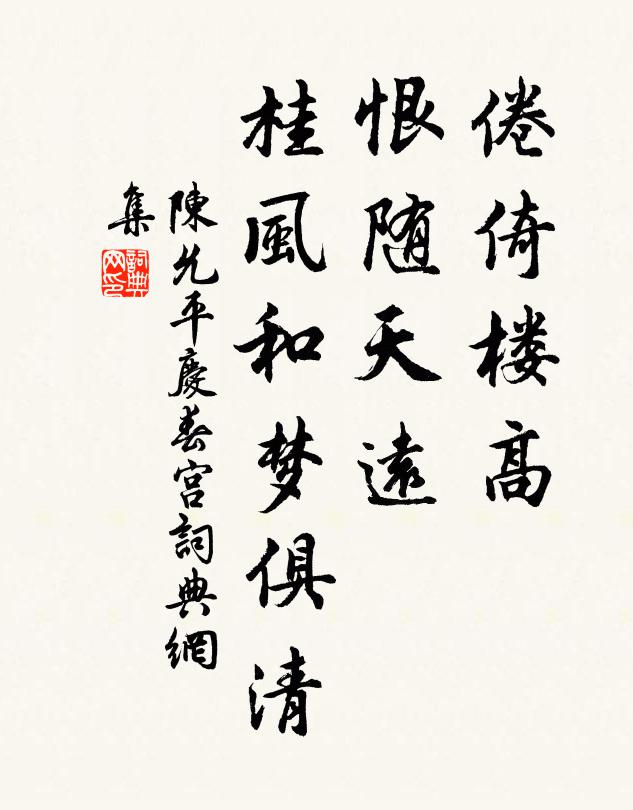 倦倚楼高
恨随天遠
桂風和梦俱清
陳允平慶春宫詞典網
集
詞典网印